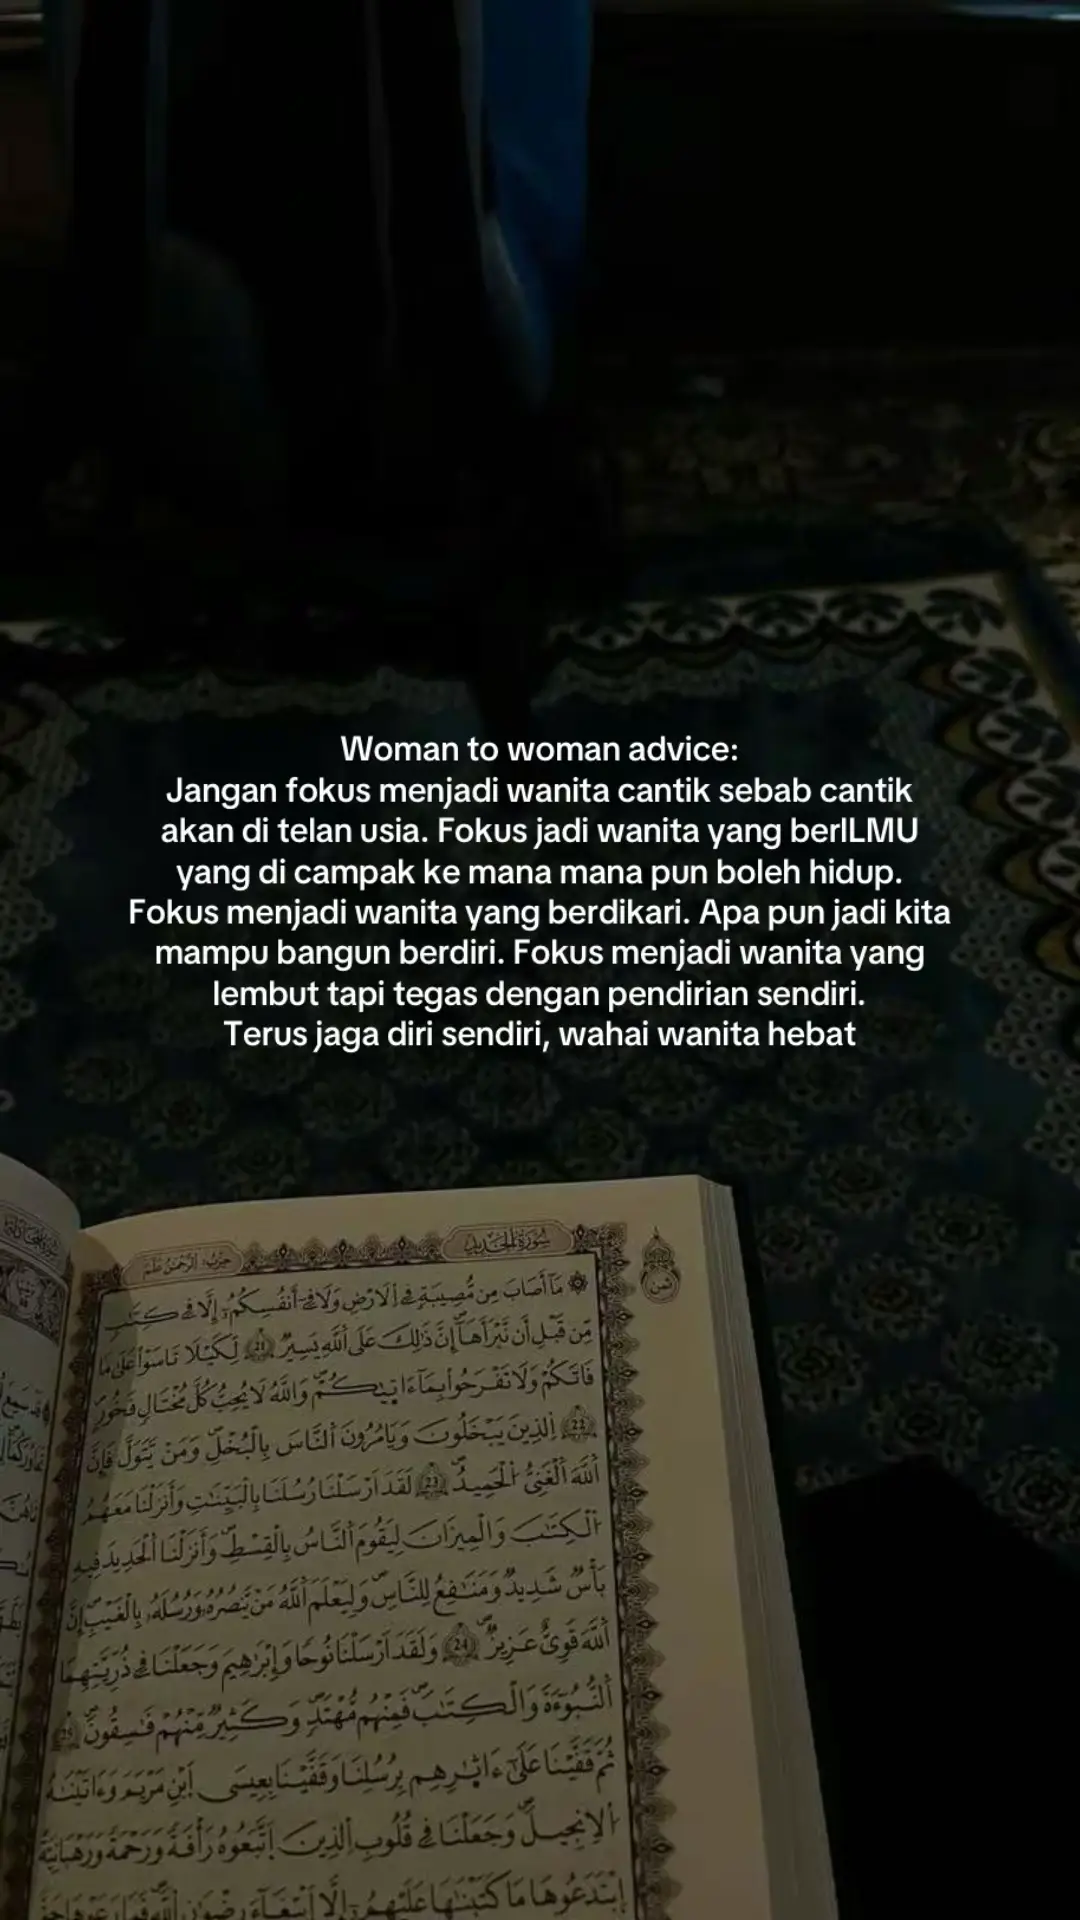 Woman to woman advice:
Jangan fokus menjadi wanita cantik sebab cantik
akan di telan usia. Fokus jadi wanita yang berILMU
yang di campak ke mana mana pun boleh hidup.
Fokus menjadi wanita yang berdikari. Apa pun jadi kita
mampu bangun berdiri. Fokus menjadi wanita yang
lembut tapi tegas dengan pendirian sendiri.
Terus jaga diri sendiri, wahai wanita hebat
سُورَةُ الْحَدِيدِ
ثمن
۞ مَآ أَصَابَ مِن مُّصِيبَةٖ فِے اِ۬لَارْضِ وَلَا فِےٓ أَنفُسِكُمُۥٓ إِلَّا فِے كِتَٰبٖ
مِّن قَبْلِ أَن نَّبْرَأَهَآۖ إِنَّ ذَٰلِكَ عَلَى اَ۬للَّهِ يَسِيرٞ 21 لِّكَيْلَا تَاسَوْاْ عَلَىٰ مَا
فَاتَكُمْ وَلَا تَفْرَحُواْ بِمَآ ءَاتۭىٰكُمْۖ وَاللَّهُ لَا يُحِبُّ كُلَّ مُخْتَالٖ فَخُورٍ
22 اِ۬لذِينَ يَبْخَلُونَ وَيَامُرُونَ اَ۬لنَّاسَ بِالْبُخْلِۖ وَمَنْ يَّتَوَلَّ فَإِنَّ
اَ۬للَّهَ اَ۬لْغَنِيُّ اُ۬لْحَمِيدُۖ 23 لَقَدَ اَرْسَلْنَا رُسُلَنَا بِالْبَيِّنَٰتِ وَأَنزَلْنَا مَعَهُمُ
اُ۬لْكِتَٰبَ وَالْمِيزَانَ لِيَقُومَ اَ۬لنَّاسُ بِالْقِسْطِۖ وَأَنزَلْنَا اَ۬لْحَدِيدَ فِيهِ
بَأْسٞ شَدِيدٞ وَمَنَٰفِعُ لِلنَّاسِ وَلِيَعْلَمَ اَ۬للَّهُ مَنْ يَّنصُرُهُۥ وَرُسُلَهُۥ بِالْغَيْبِۖ إِنَّ
اَ۬للَّهَ قَوِيٌّ عَزِيزٞۖ 24 وَلَقَدَ اَرْسَلْنَا نُوحاٗ وَإِبْرَٰهِيمَ وَجَعَلْنَا فِے ذُرِّيَّتِهِمَا
اَ۬لنُّبُوٓءَةَ وَالْكِتَٰبَۖ فَمِنْهُم مُّهْتَدٖۖ وَكَثِيرٞ مِّنْهُمْ فَٰسِقُونَۖ 25
ثُمَّ قَفَّيْنَا عَلَىٰٓ ءَاثٰ۪رِهِم بِرُسُلِنَا وَقَفَّيْنَا بِعِيسَى اَ۪بْنِ مَرْيَمَ وَءَاتَيْنَٰهُ
اُ۬لِانجِيلَۖ وَجَعَلْنَا فِے قُلُوبِ اِ۬لذِينَ اَ۪تَّبَعُوهُ رَأْفَةٗ وَرَحْمَةٗۖ وَرَهْبَانِيَّةً
اِ۪بْتَدَعُوهَا مَا كَتَبْنَٰهَا عَلَيْهِمُۥٓ إِلَّا اَ۪بْتِغَآءَ رِضْوَٰنِ اِ۬للَّهِ فَمَا رَعَوْهَا حَقَّ